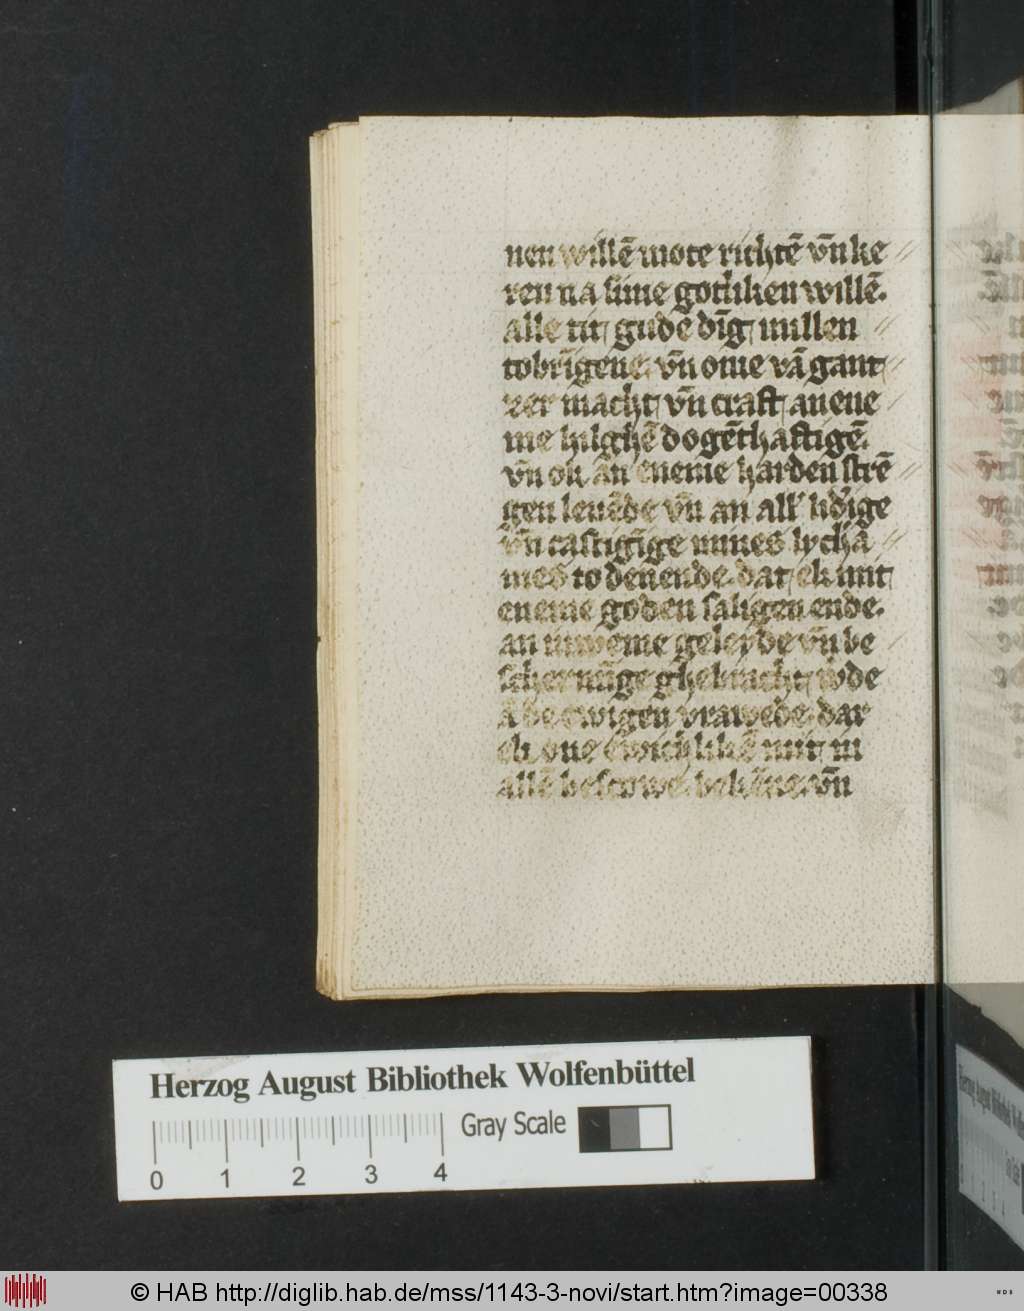 nen willē mote richtē vn̄ ke
ren na sime gotliken willē.
alle tit gude dīg willen
tobrīgene. vn̄ ome vā gant
zer macht vn̄ craft an ene
me hilghē dogēthaftigē.
vn̄ ok an eneme harden strē
gen leuēde vn̄ an all'
vn̄ castigīge mines lychā
mes to denende. dat ek mit
eneme goden saligen ende.
an iuweme geleyde vn̄ be
schermīge ghebracht w̄de
ewigen vrawede. dar
ek one ewichlikē mit iu
allē bescowe. bekēne. vn̄
Herzog August Bibliothek Wolfenbüttel
Gray Scale
0 1 2 3 4
© HAB http://diglib.hab.de/mss/1143-3-novi/start.htm?image=00338